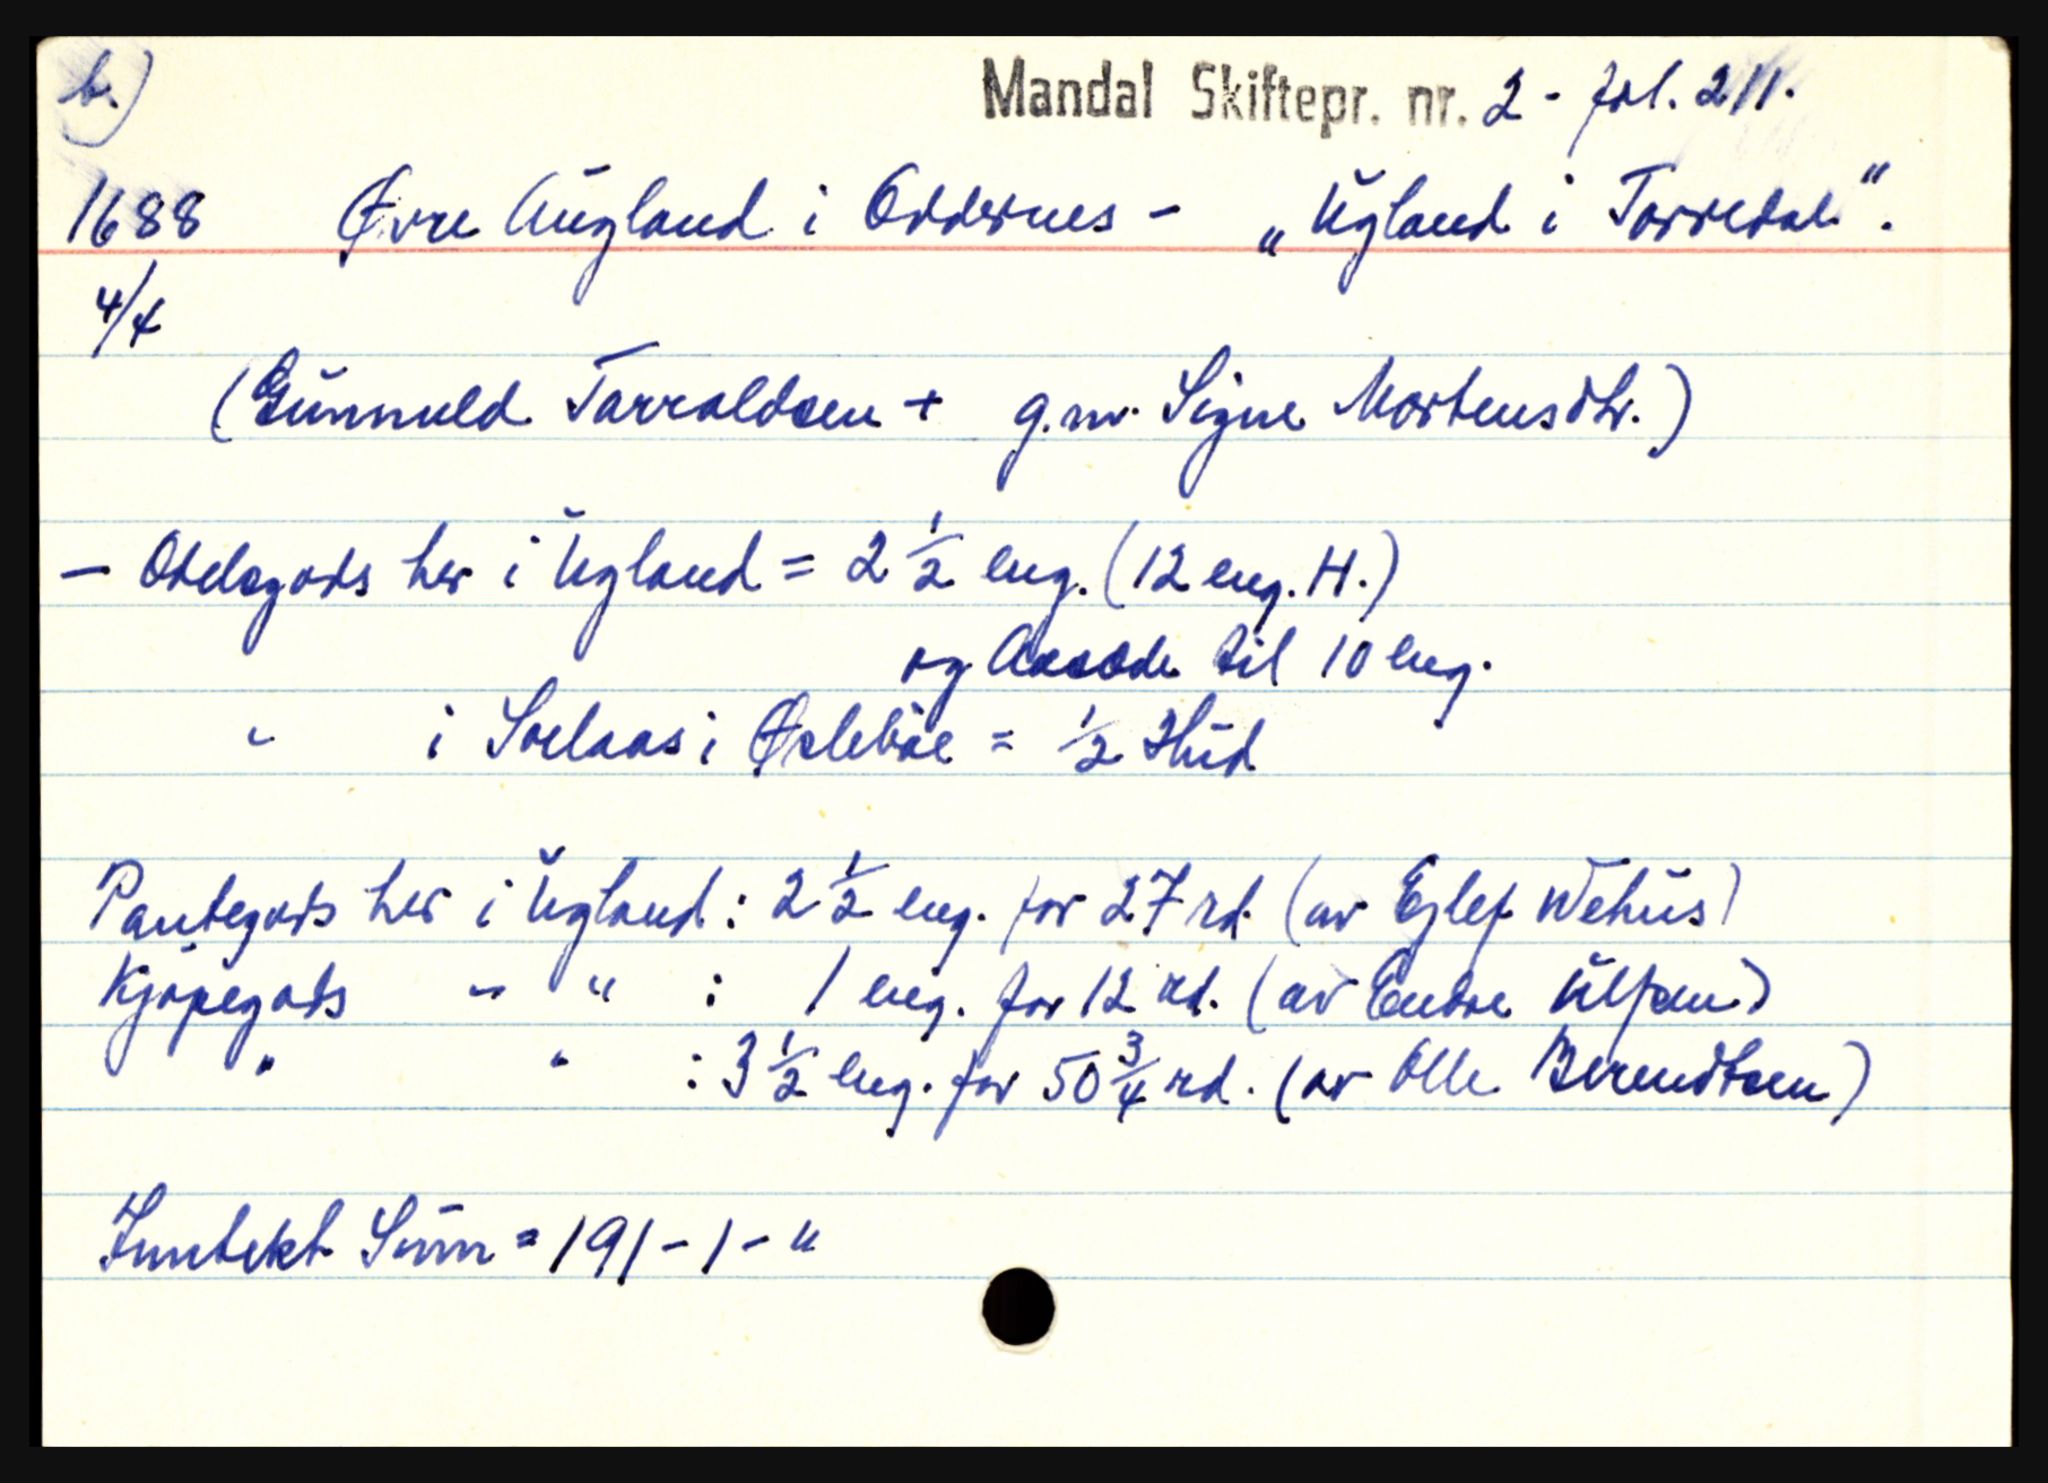 b.)
Mandal Skiftepr. nr. 2 - fol. 211.
1688 Øvre Augland i Oddernes - „Ugland i Torredal“.
4/4
(Gunnuld Tarraldsen + g.m. Signe Mortensdtr.)
- Odelsgods her i Ugland = 2 1/2 eng. (12 eng. H.)
og Aasæde til 10 eng.
" i Soelaas i Øsleböe = 1/2 Hud
Pantegods her i Ugland : 2 1/2 eng. for 27 rd. (av Ejlef Wehus)
Kjöpegods " " : 1 eng. for 12 rd. (av Endre Ulfsen)
" " : 3 1/2 eng. for 50 3/4 rd. (av Olle Berendtsen)
Inntekt Sum = 191 - 1 - "